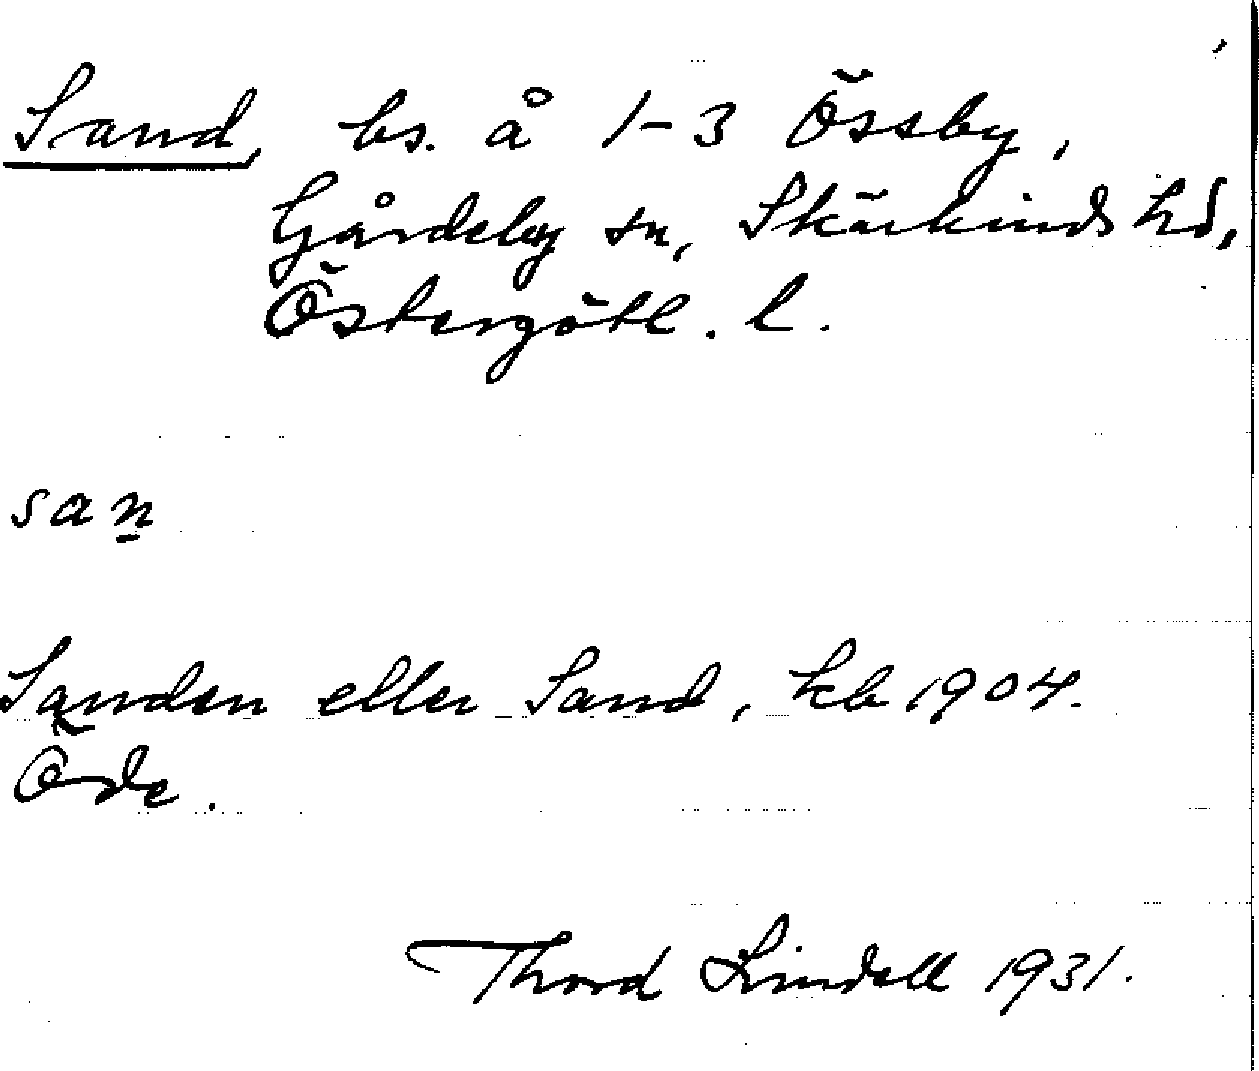 Sand, bs. å 1-3 Össby,
Gårdeby sn, Skärkinds hd,
Östergötl. l.
san̲
Sanden eller Sand, kb 1904.
Öde.
Thord Lindell 1931.